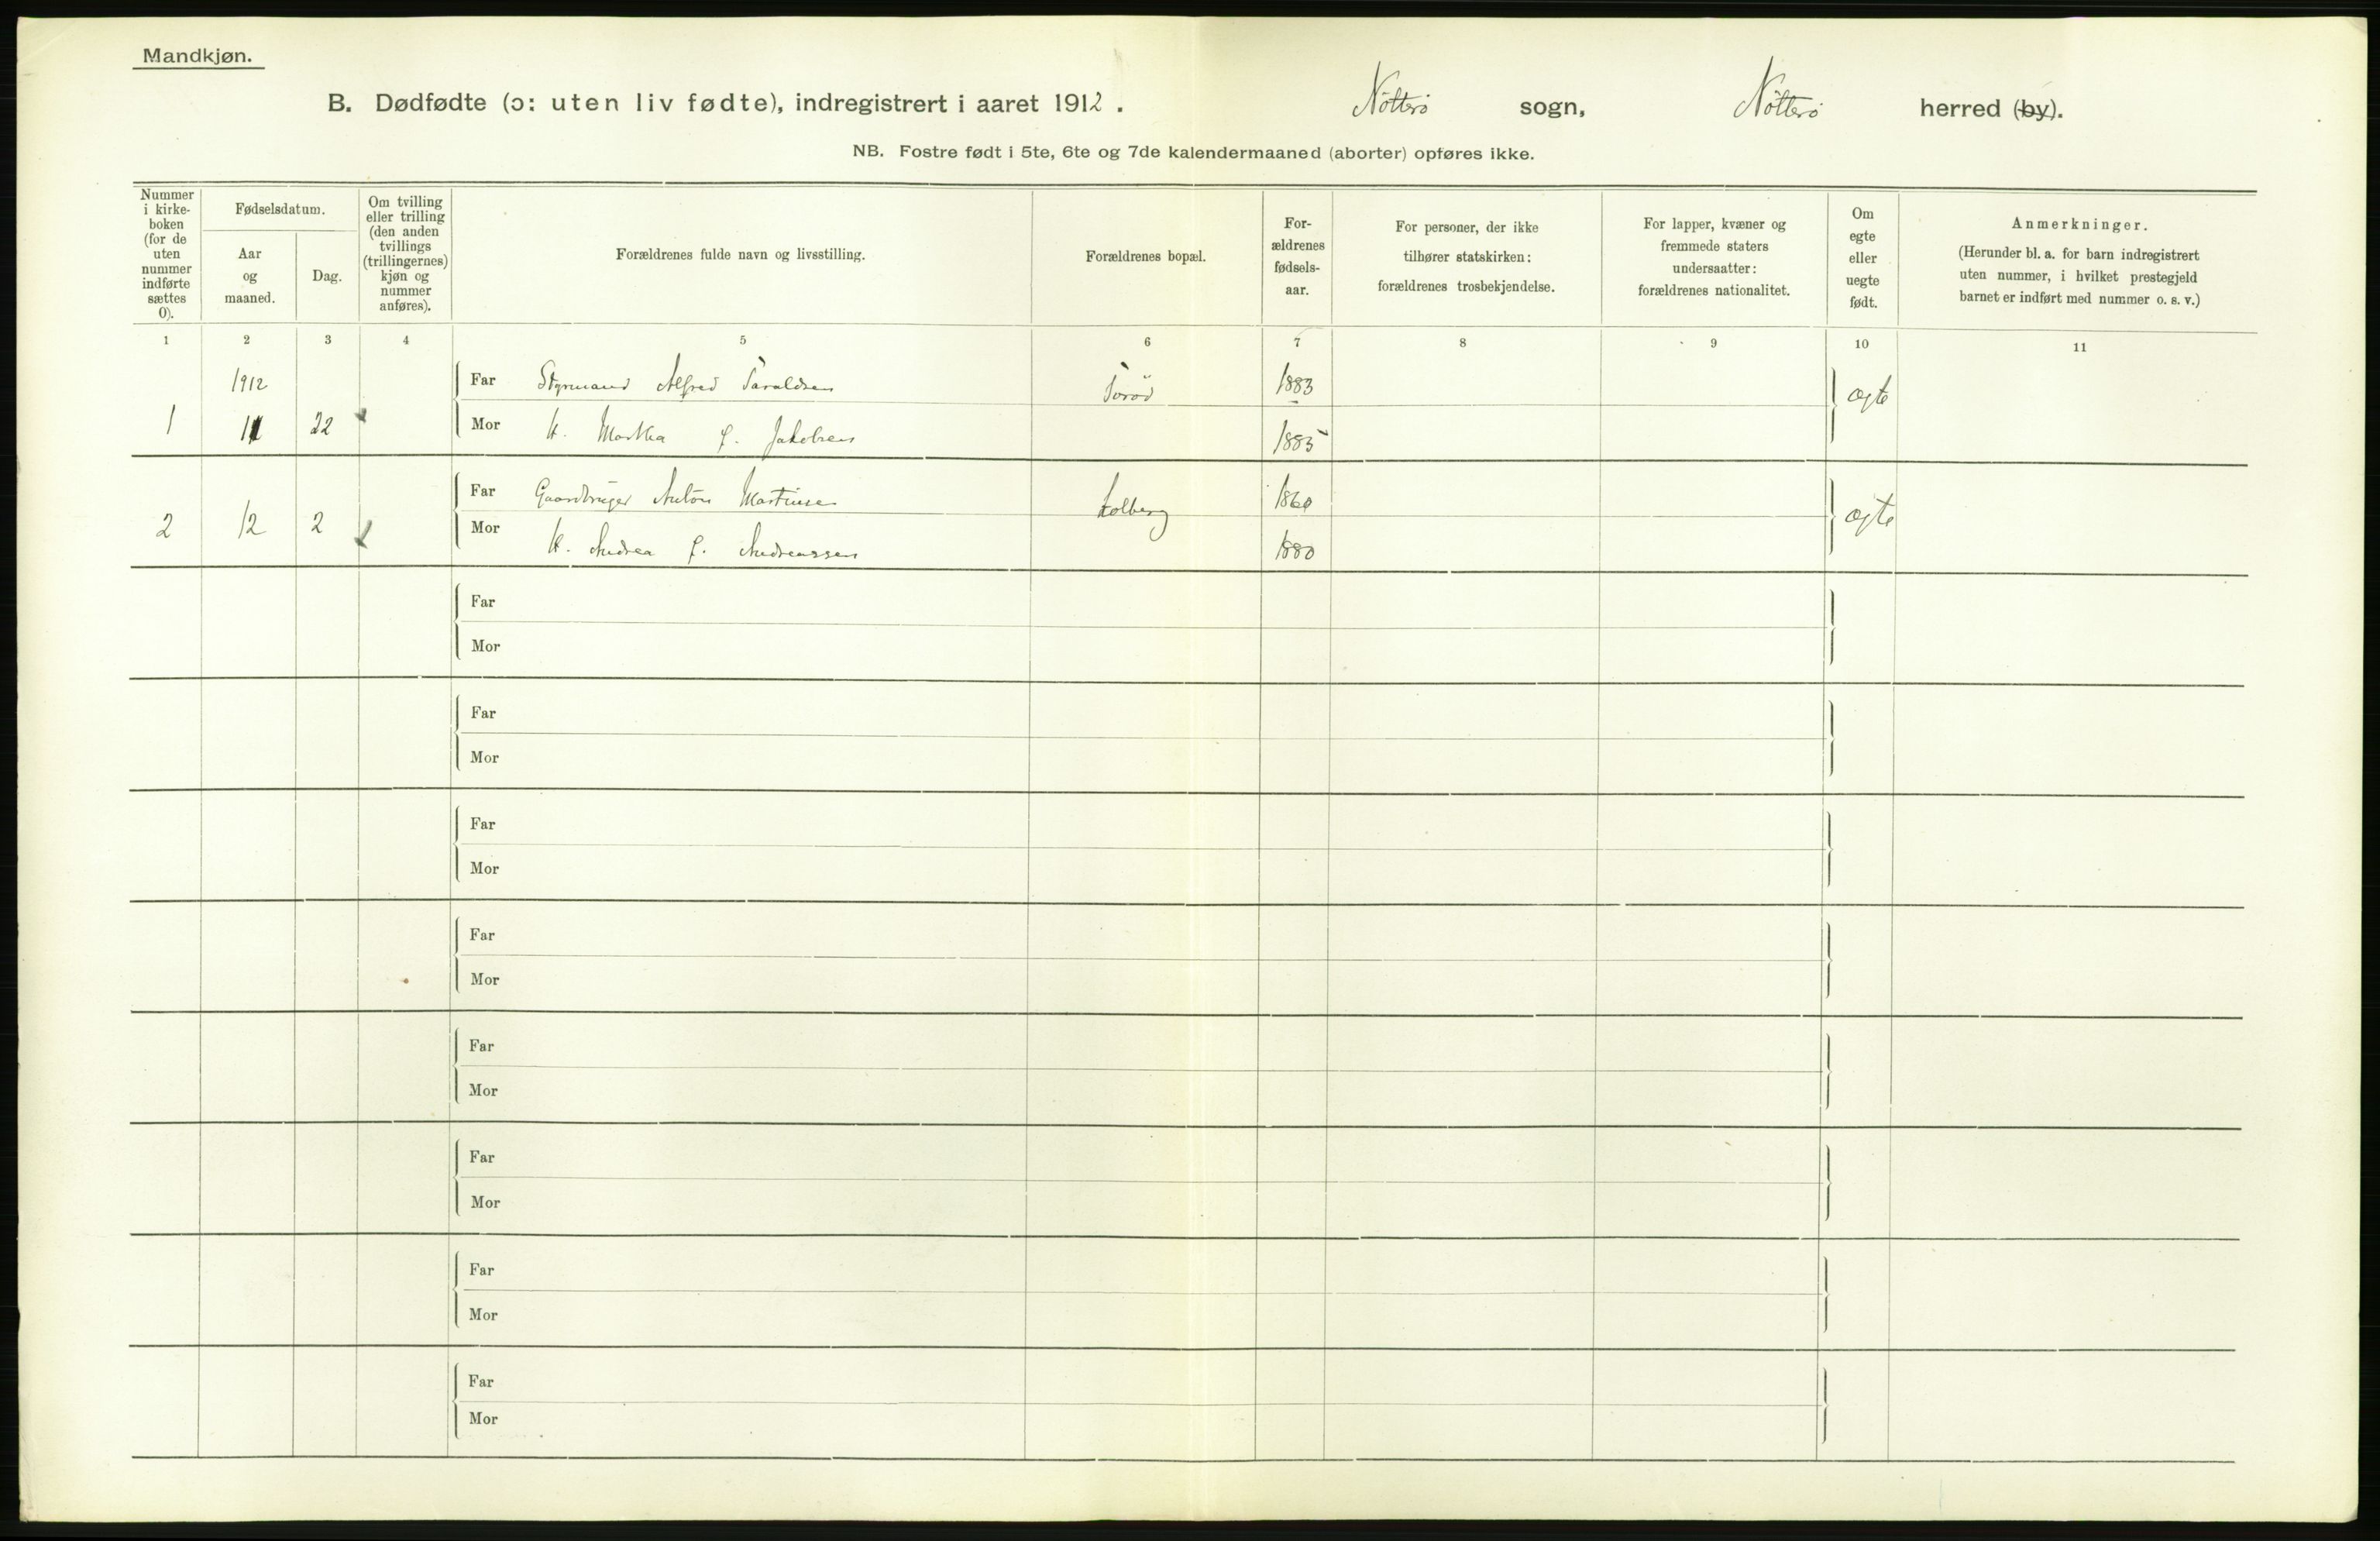 Mandkjøn.
B. Dødfødte (ɔ: uten liv fødte), indregistrert i aaret 1912. Nötterö sogn, Nötterö herred (by).
NB. Fostre født i 5te, 6te og 7de kalendermaaned (aborter) opføres ikke.
Nummer
i kirke-
boken
(for de
uten
nummer
indførte
sættes
0).
Fødselsdatum.
Aar
og
maaned.
Dag.
Om tvilling
eller trilling
(den anden
tvillings
(trillingernes)
kjøn og
nummer
anføres).
Forældrenes fulde navn og livsstilling.
Forældrenes bopæl.
For-
ældrenes
fødsels-
aar.
For personer, der ikke
tilhører statskirken:
forældrenes trosbekjendelse.
For lapper, kvæner og
fremmede staters
undersaatter:
forældrenes nationalitet.
Om
egte
eller
uegte
født.
Anmerkninger.
(Herunder bl. a. for barn indregistrert
uten nummer, i hvilket prestegjeld
barnet er indført med nummer o. s. v.)
1 2 3 4 5 6 7 8 9 10 11
1912 Far Styrmand Alfred Taraldsen Torød 1883 ægte
1 11 22 Mor H. Martha f. Jakobsen 1885
Far Gaardbruger Anton Martinsen Kolberg 1860 ægte
2 12 2 Mor H. Andrea f. Andreassen 1880
Far
Mor
Far
Mor
Far
Mor
Far
Mor
Far
Mor
Far
Mor
Far
Mor
Far
Mor